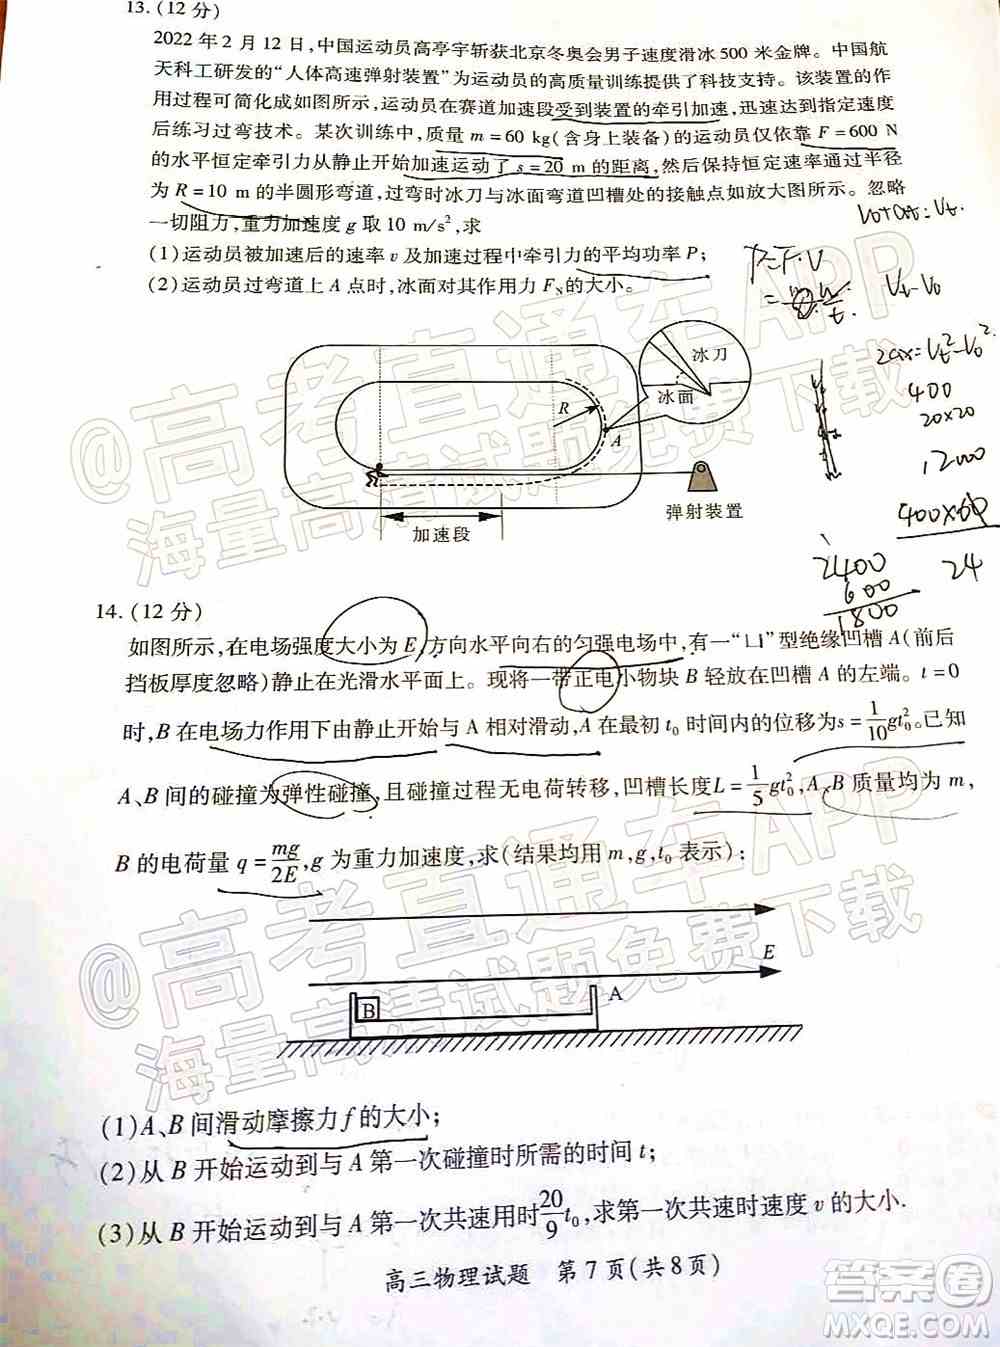 13.(12分)
2022年2月12日,中国运动员高亭宇斩获北京冬奥会男子速度滑冰500米金牌。中国航
天科工研发的“人体高速弹射装置”为运动员的高质量训练提供了科技支持。该装置的作
用过程可简化成如图所示,运动员在赛道加速段受到装置的牵引加速,迅速达到指定速度
后练习过弯技术。某次训练中,质量m=60 kg(含身上装备)的运动员仅依靠F=600 N
的水平恒定牵引力从静止开始加速运动了s=20 m的距离,然后保持恒定速率通过半径
为R=10 m的半圆形弯道,过弯时冰刀与冰面弯道凹槽处的接触点如放大图所示。忽略
一切阻力,重力加速度g取10 m/s²,求
(1)运动员被加速后的速率v及加速过程中牵引力的平均功率P;
(2)运动员过弯道上A点时,冰面对其作用力F_N的大小。
V₀+at=Vₜ
P=F·V
Vₜ-V₀
2ax=Vₜ²-V₀²
400
20×20
1200
400×60
24
2400
600
1800
冰刀
冰面
R
A
弹射装置
加速段
14.(12分)
如图所示,在电场强度大小为E,方向水平向右的匀强电场中,有一“凵”型绝缘凹槽A(前后
挡板厚度忽略)静止在光滑水平面上。现将一带正电小物块B轻放在凹槽A的左端。t=0
时,B在电场力作用下由静止开始与A相对滑动,A在最初t₀时间内的位移为s=1/10gt₀²。已知
A、B间的碰撞为弹性碰撞,且碰撞过程无电荷转移,凹槽长度L=1/5gt₀²,A、B质量均为m,
B的电荷量q=mg/2E,g为重力加速度,求(结果均用m,g,t₀表示);
E
B
A
(1)A、B间滑动摩擦力f的大小;
(2)从B开始运动到与A第一次碰撞时所需的时间t;
(3)从B开始运动到与A第一次共速用时20/9t₀,求第一次共速时速度v的大小.
高三物理试题 第7页(共8页)
@高考直通车APP
海量高清试题免费下载
@高考直通车APP
海量高清试题免费下载
答案圈
MXQE.COM